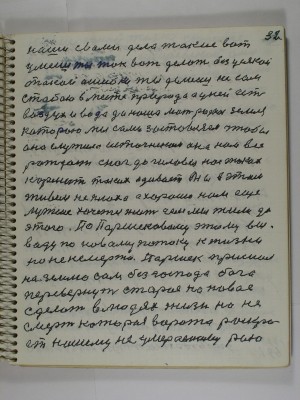 32.
наши с вами дела такие вот
умеши ты так вот делать без всякой
такой ошибки ты делаеш не сам
с тобою вместе природа а у ней ест
воздух и вода да наша мат родная земля
которую мы сами заставляем чтобы
она служила источником она нам все
раждает с ног до головы на
кормит таких одивает Мы в этом
живем не плохо а хорошо нам еще
лутшее хочется жит чем мы жили до
этого. По Паршековому этому вы
ваду по новому потоку к жизни
но не к смерти. Паршек пришол
на землю сам без господа бога
перевернут старое на новое
сделат в людях жизн но не
смерт которая ворота раскро
ет нашему не умераемому раю